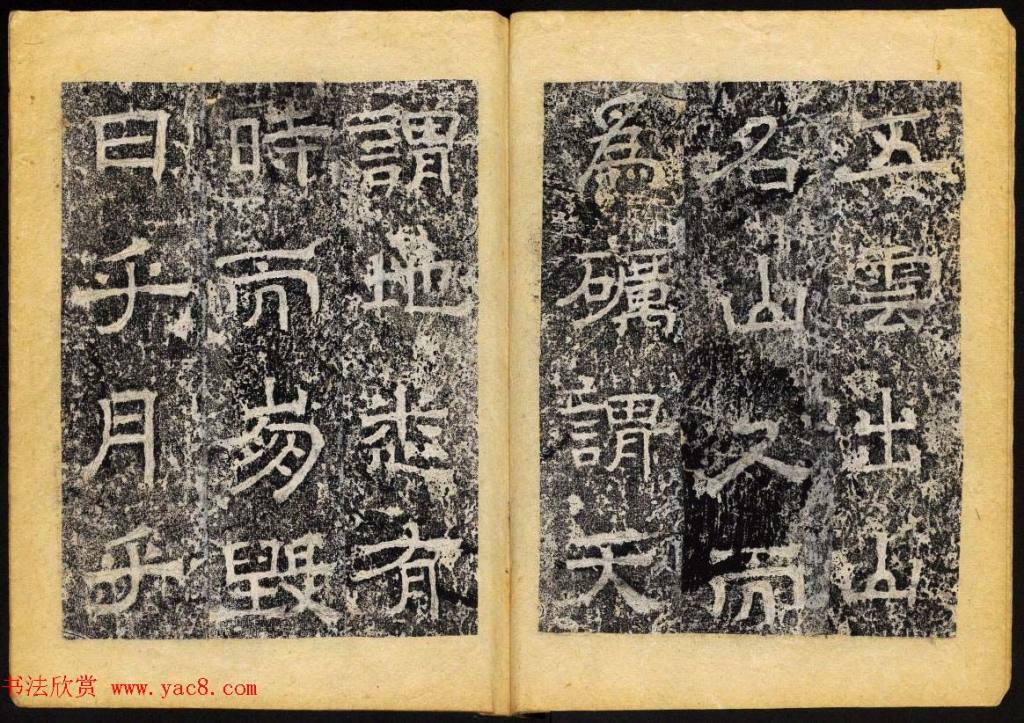 五雲出山
名山久而
為礦謂天
謂地有
時而毀
日乎月乎
书法欣赏 www.yac8.com